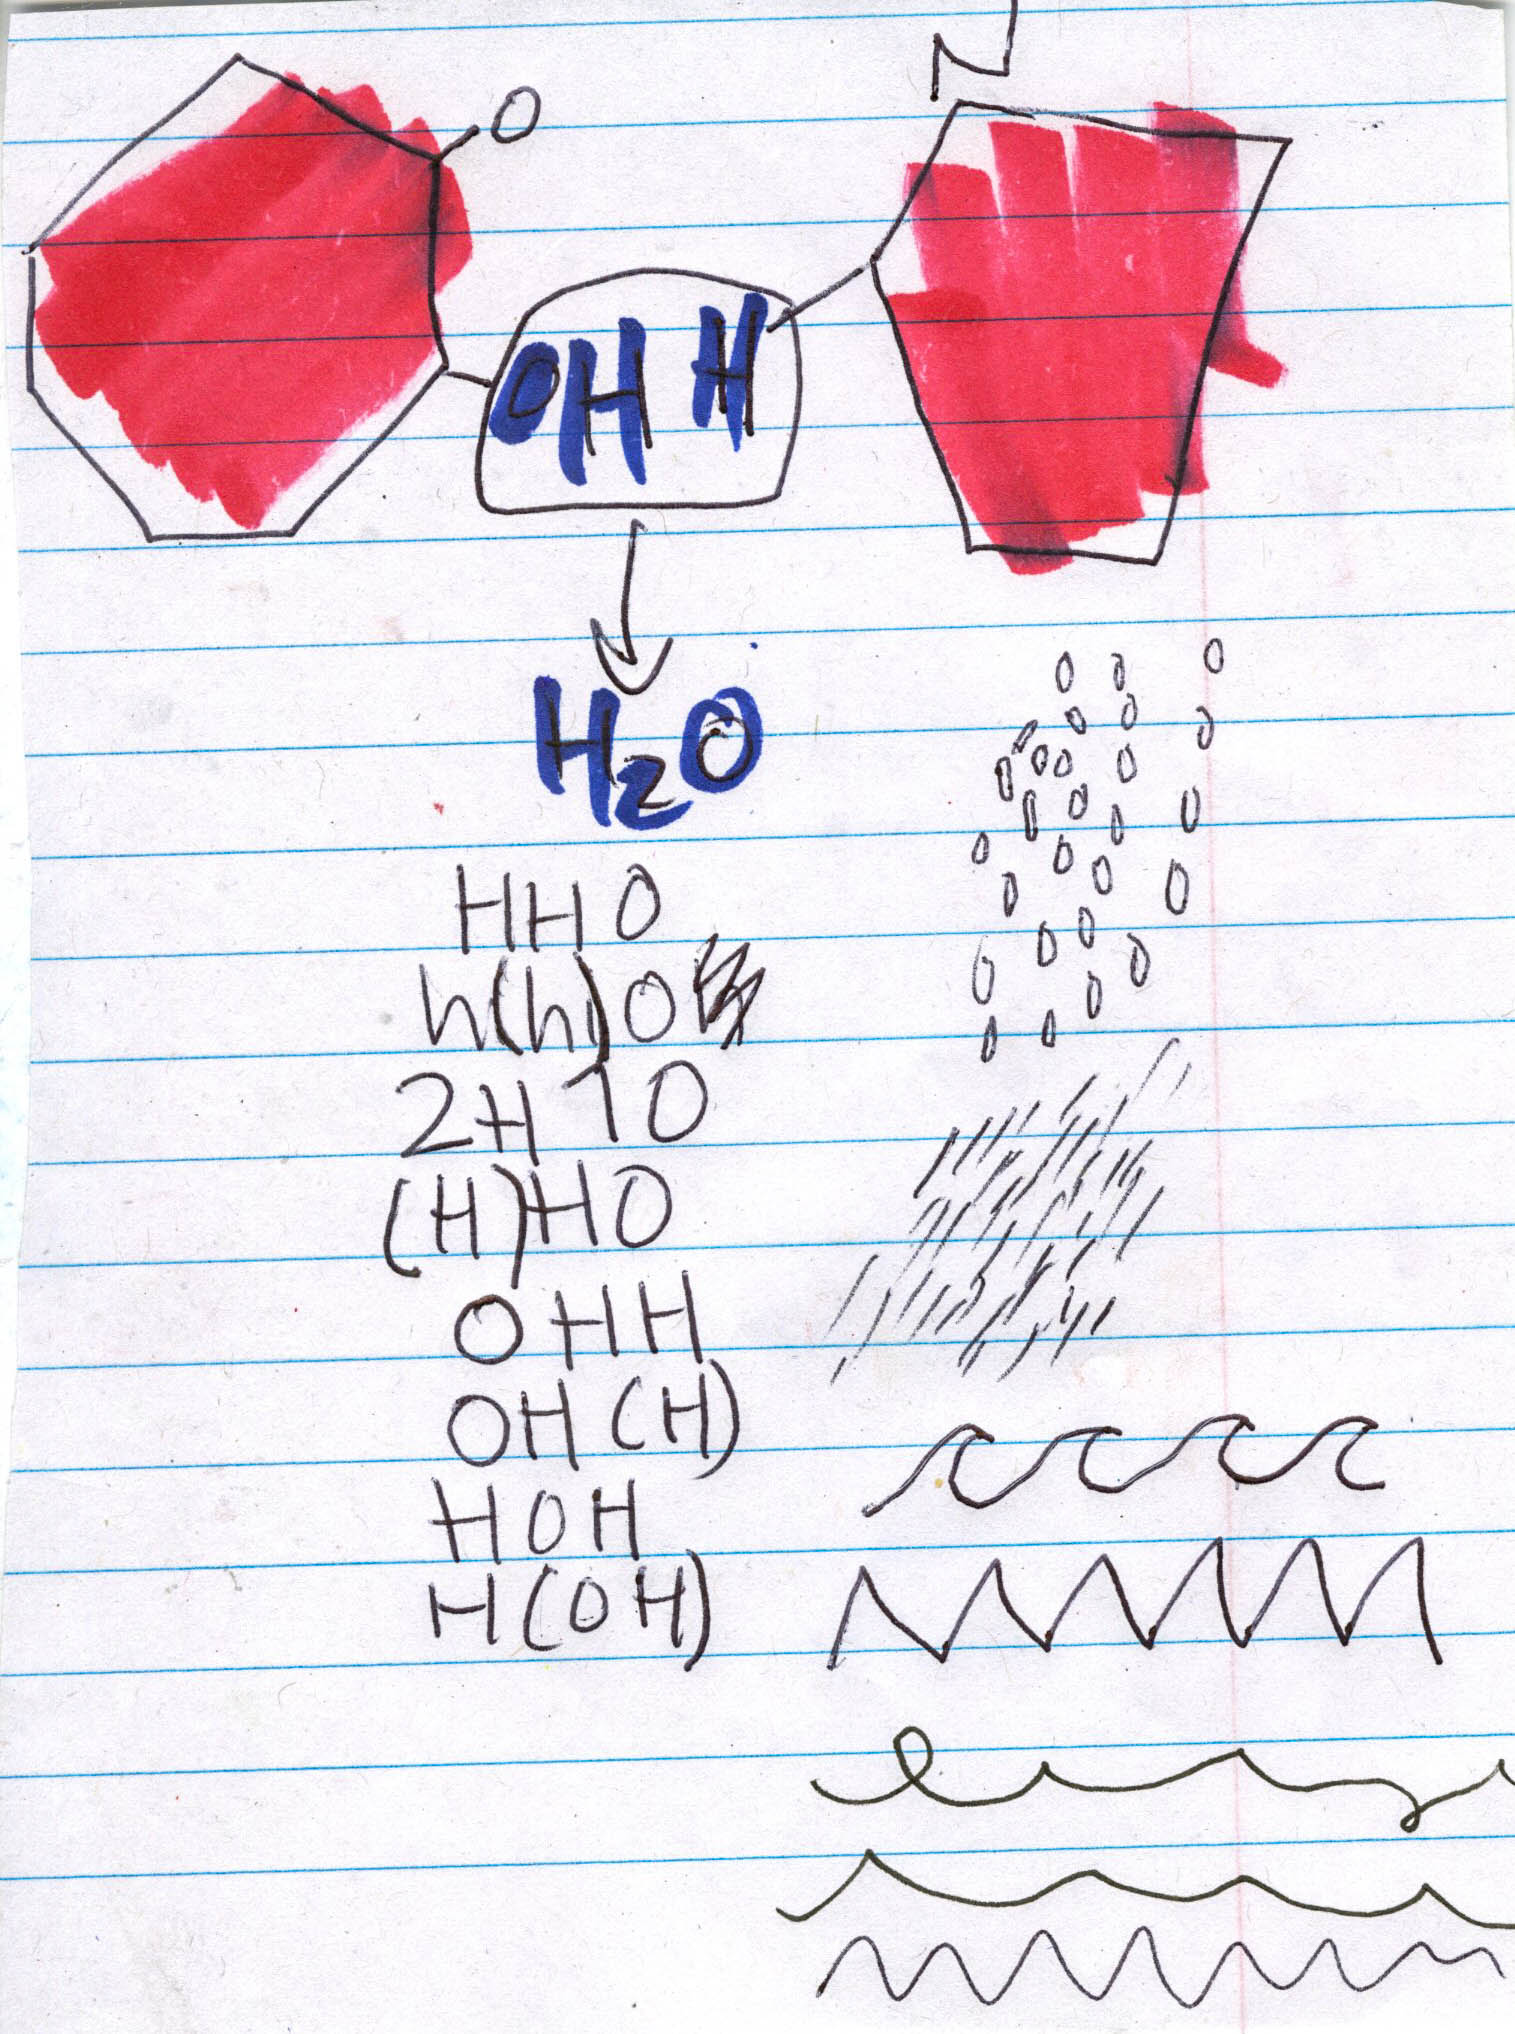 O
OH H
H2O
HHO
h(h)O
2H 1O
(H)HO
OHH
OH(H)
HOH
H(OH)